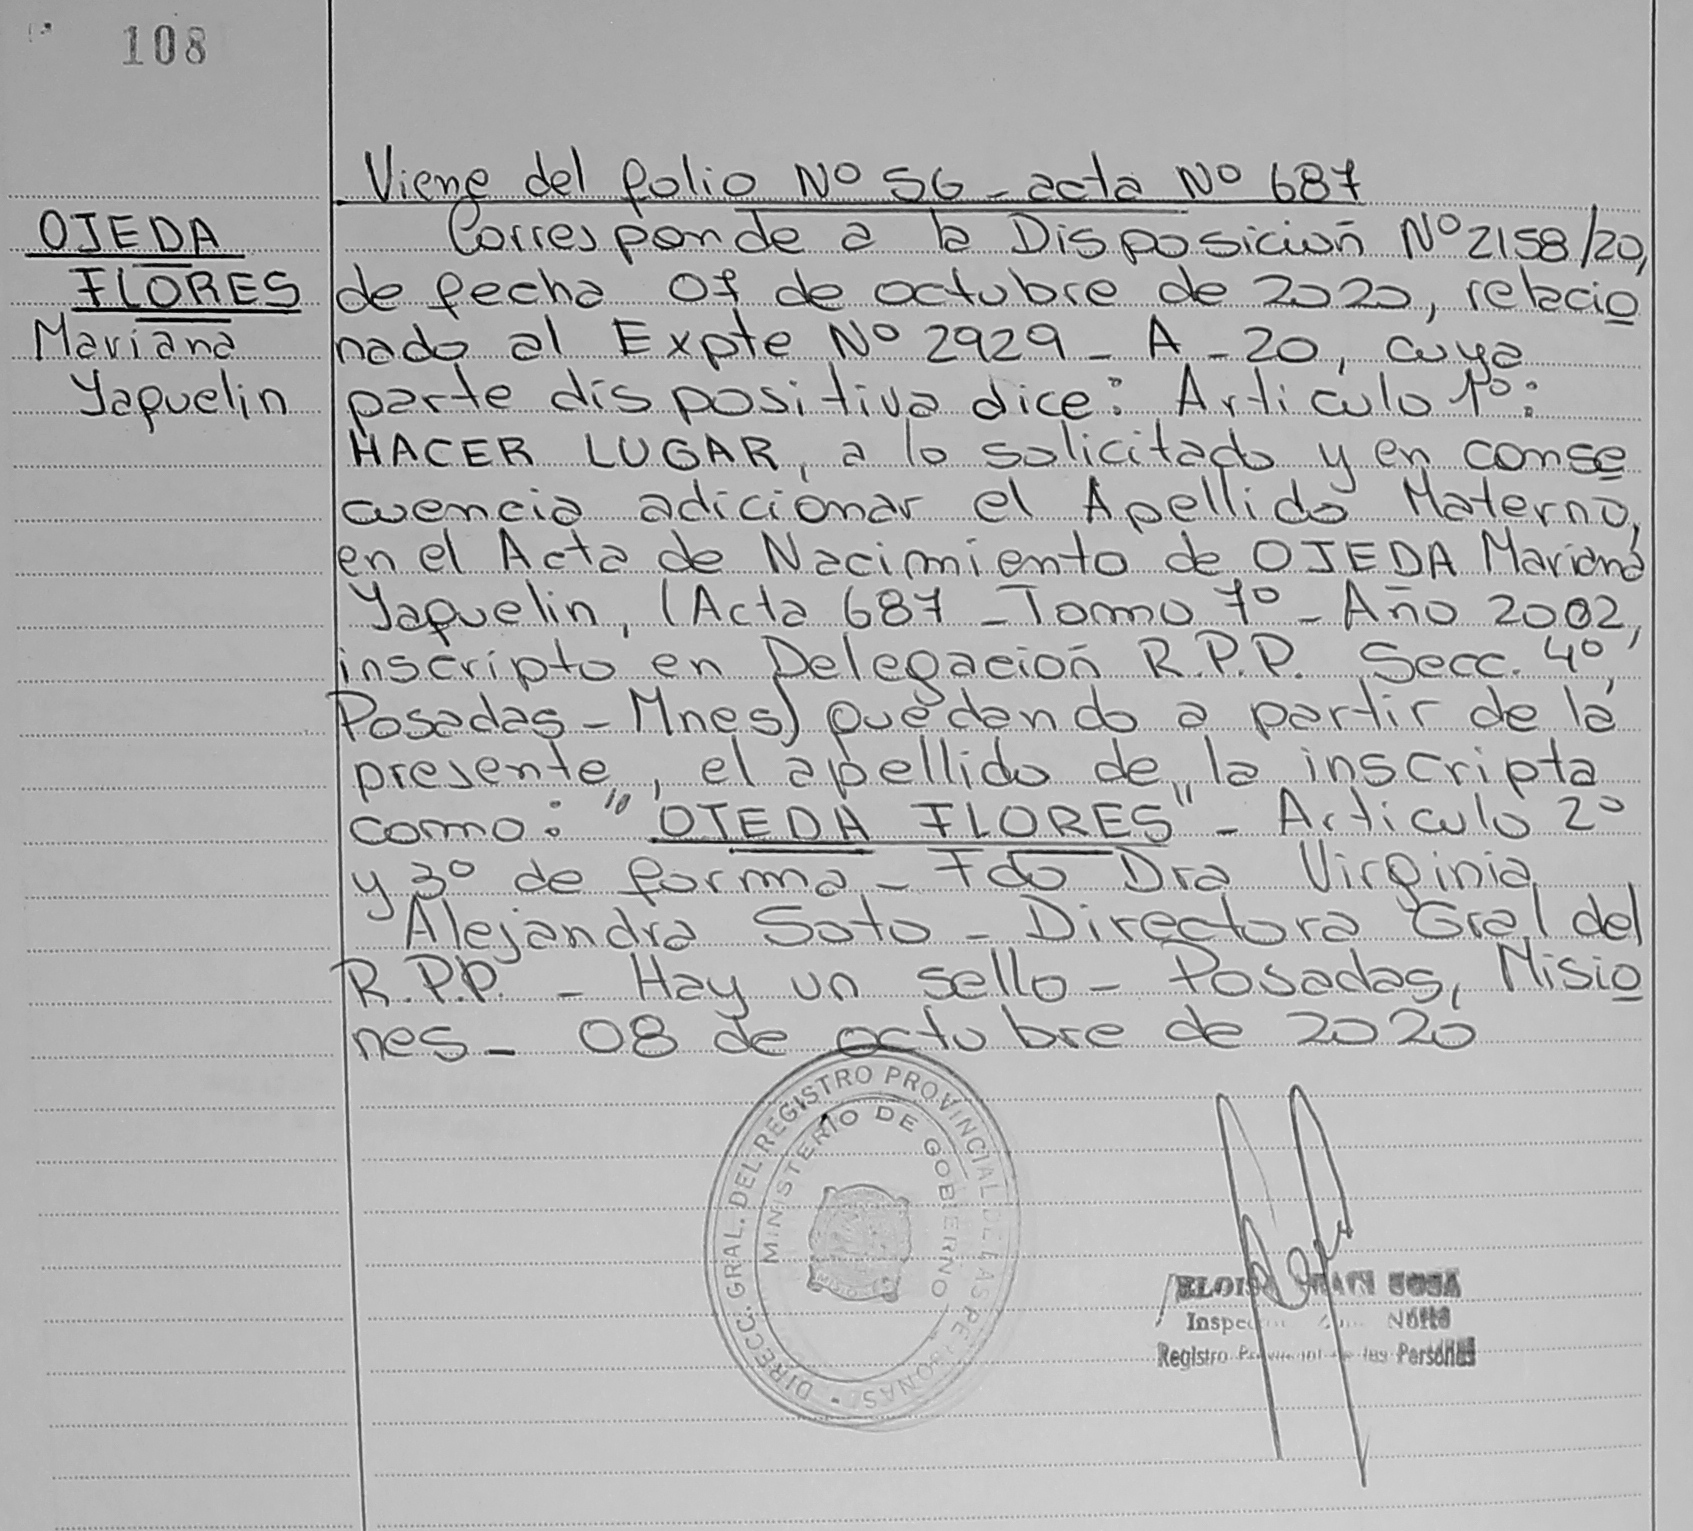 108
Viene del folio Nº 56 - acta Nº 687
OJEDA
FLORES
Mariana
Yaquelin
Corresponde a la Disposición Nº 2158/20,
de fecha 07 de octubre de 2020, relacio
nado al Expte Nº 2929 - A - 20, cuya
parte dispositiva dice: Articulo 1º:
HACER LUGAR, a lo solicitado y en conse
cuencia adicionar el Apellido Materno,
en el Acta de Nacimiento de OJEDA Mariana
Yaquelin, (Acta 687 - Tomo 7º - Año 2002,
inscripto en Delegación R.P.P. Secc. 4º,
Posadas - Mnes) quedando a partir de la
presente, el apellido de la inscripta
como: "OJEDA FLORES" - Articulo 2º
y 3º de forma - Fdo Dra Virginia
Alejandra Soto - Directora Gral del
R.P.P. - Hay un sello - Posadas, Misio
nes - 08 de octubre de 2020
DIRECC. GRAL. DEL REGISTRO PROVINCIAL DE LAS PERSONAS
MINISTERIO DE GOBIERNO
Registro Provincial de las Personas